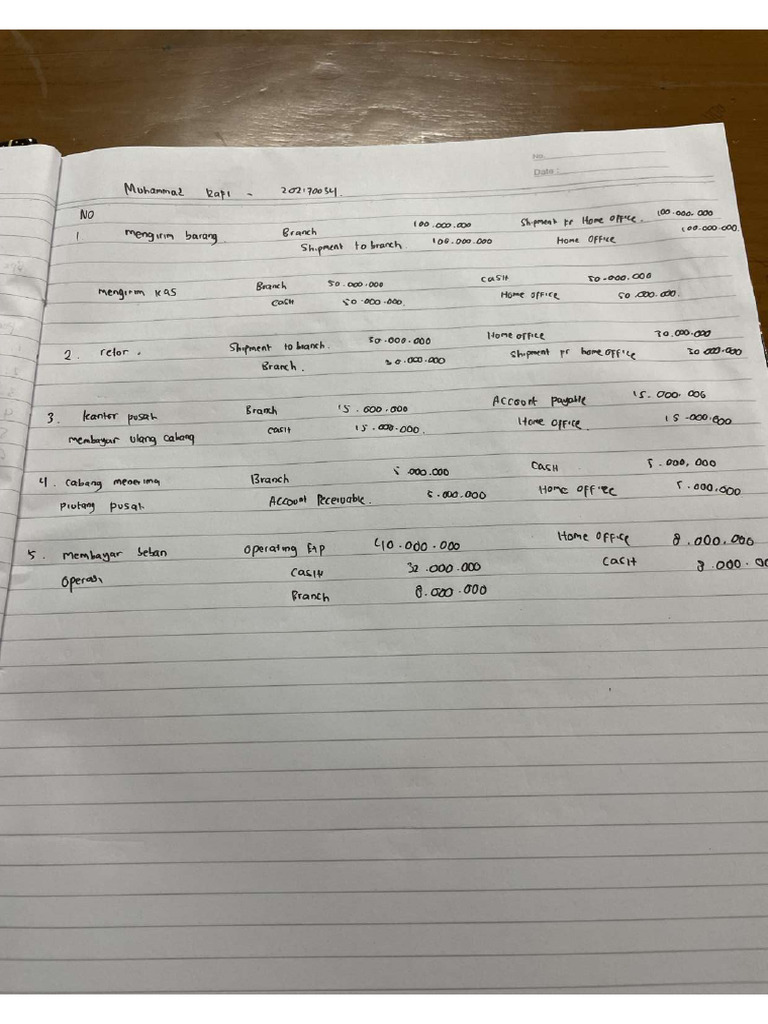 No.
Date :
Muhammad Rafi - 202170034
NO
1 mengirim barang. Branch 100.000.000 Shipment fr Home Office. 100.000.000
Shipment to branch. 100.000.000 Home Office 100.000.000.
mengirim kas Branch 50.000.000 CASH 50.000.000
CASH 50.000.000. Home Office 50.000.000.
2. retor. Shipment to branch. 30.000.000 Home office 30.000.000
Branch. 30.000.000 Shipment fr home office 30.000.000
3. kantor pusat Branch 15.000.000 Account payable 15.000.000
membayar utang cabang CASH 15.000.000. Home Office. 15.000.000
4. cabang menerima Branch 5.000.000 CASH 5.000.000
piutang pusat. Account Receivable. 5.000.000 Home Office 5.000.000
5. membayar beban Operating Exp 40.000.000 Home Office 8.000.000
operasi CASH 32.000.000 CASH 8.000.00
Branch 8.000.000